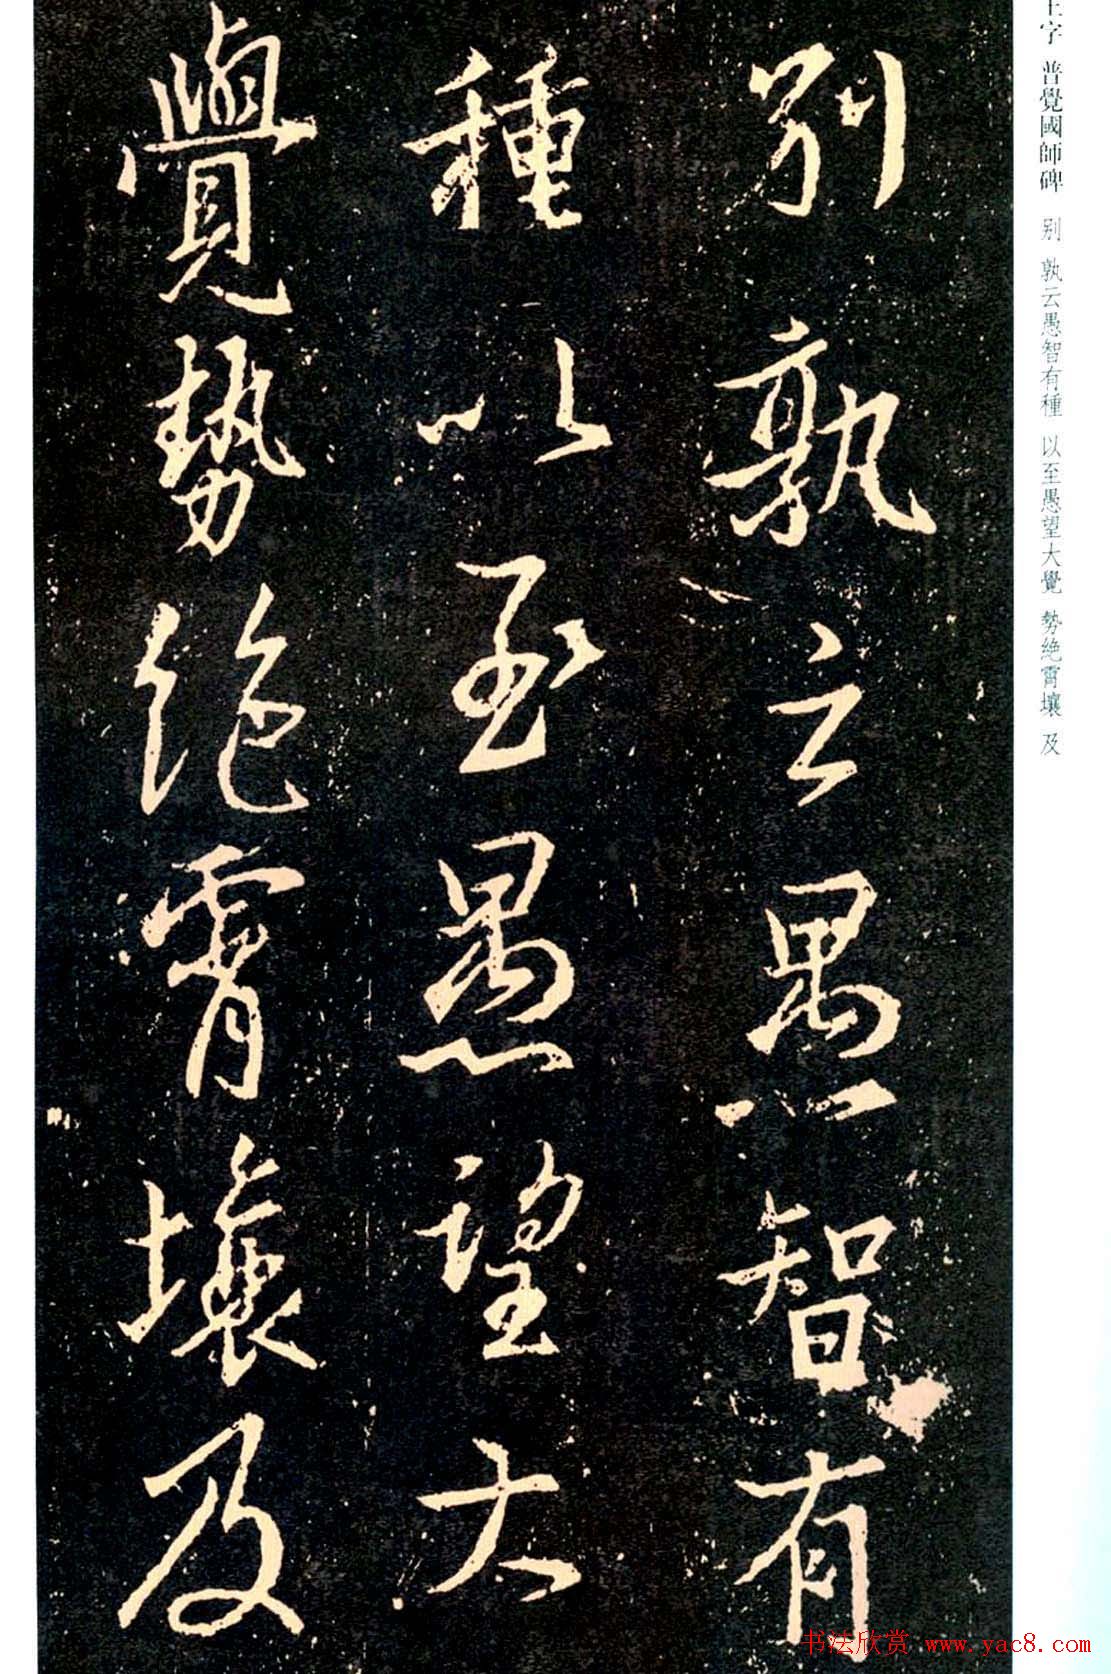 王字 普覺國師碑 别 孰云愚智有種 以至愚望大覺 勢絶霄壤 及
别孰云愚智有
種以至愚望大
覺勢絶霄壤及
书法欣赏 www.yac8.com